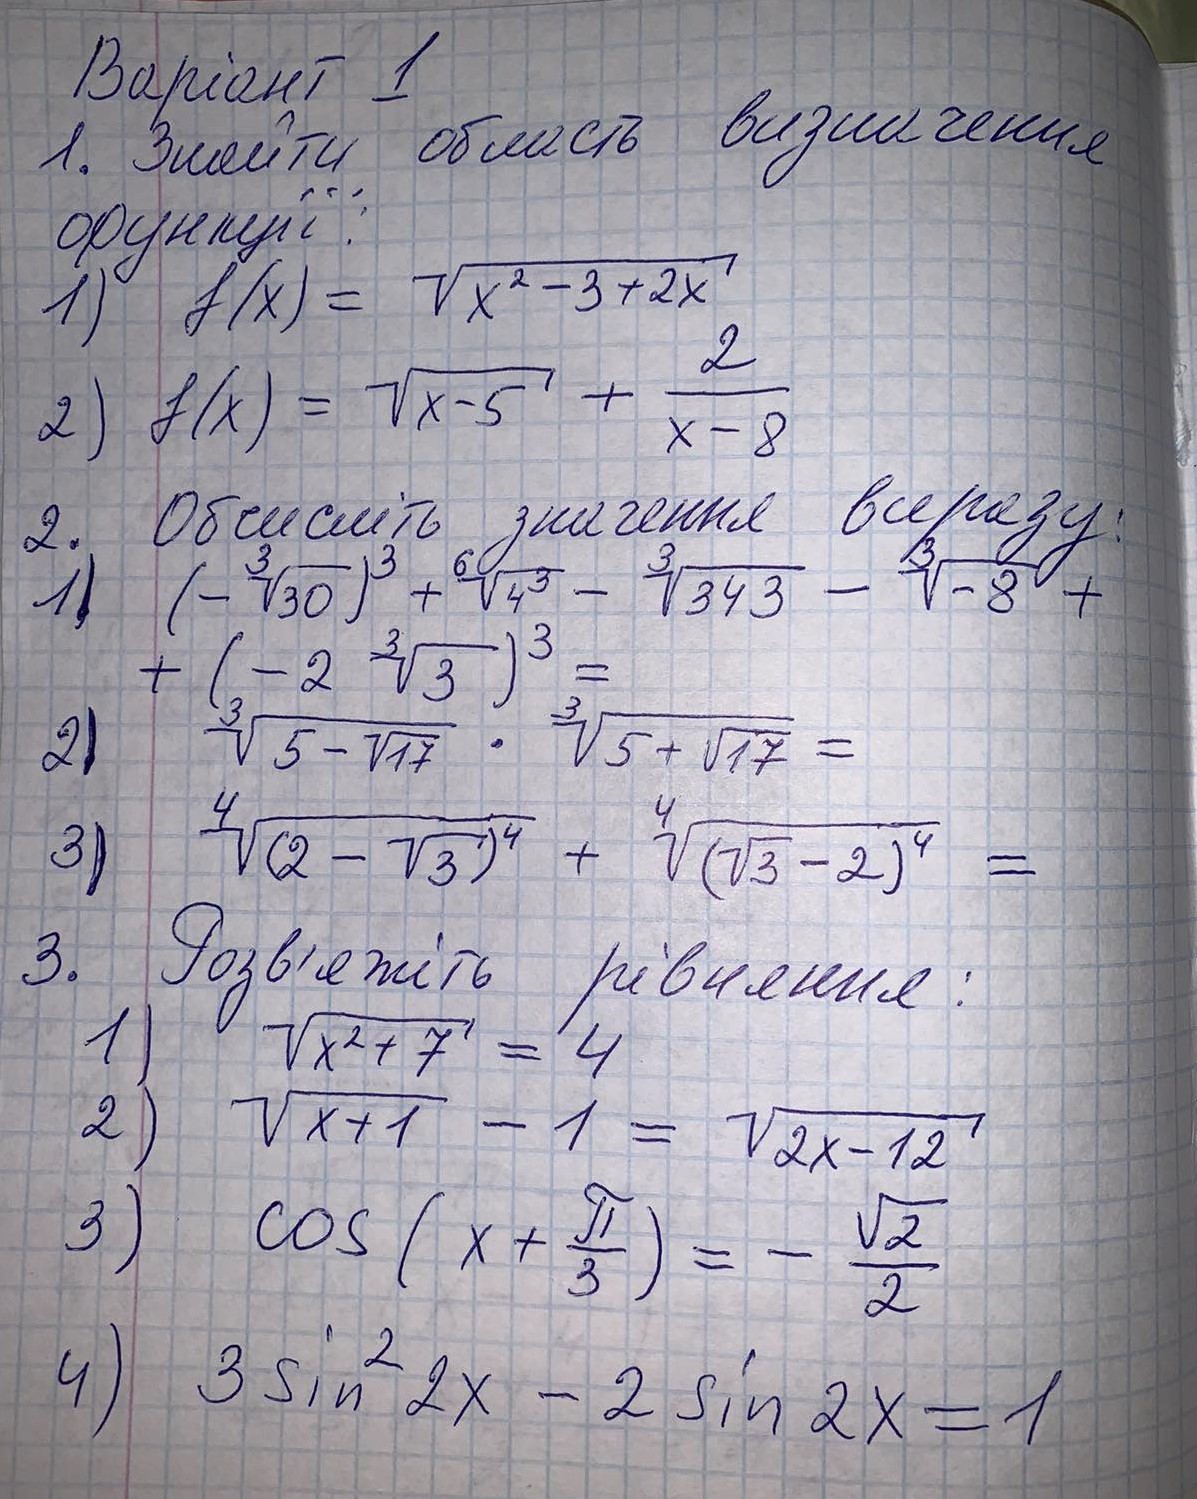 Варіант 1
1. Знайти область визначення
функції:
1) f(x) = √(x² - 3 + 2x)
2) f(x) = √(x-5) + 2/(x-8)
2. Обчисліть значення виразу:
1) (-∛30)³ + ⁶√(4³) - ∛343 - ∛(-8) +
+ (-2 ∛3)³ =
2) ∛(5-√17) · ∛(5+√17) =
3) ⁴√((2-√3)⁴) + ⁴√((√3-2)⁴) =
3. Розв'яжіть рівняння:
1) √(x²+7) = 4
2) √(x+1) - 1 = √(2x-12)
3) cos(x + π/3) = - √2/2
4) 3 sin² 2x - 2 sin 2x = 1